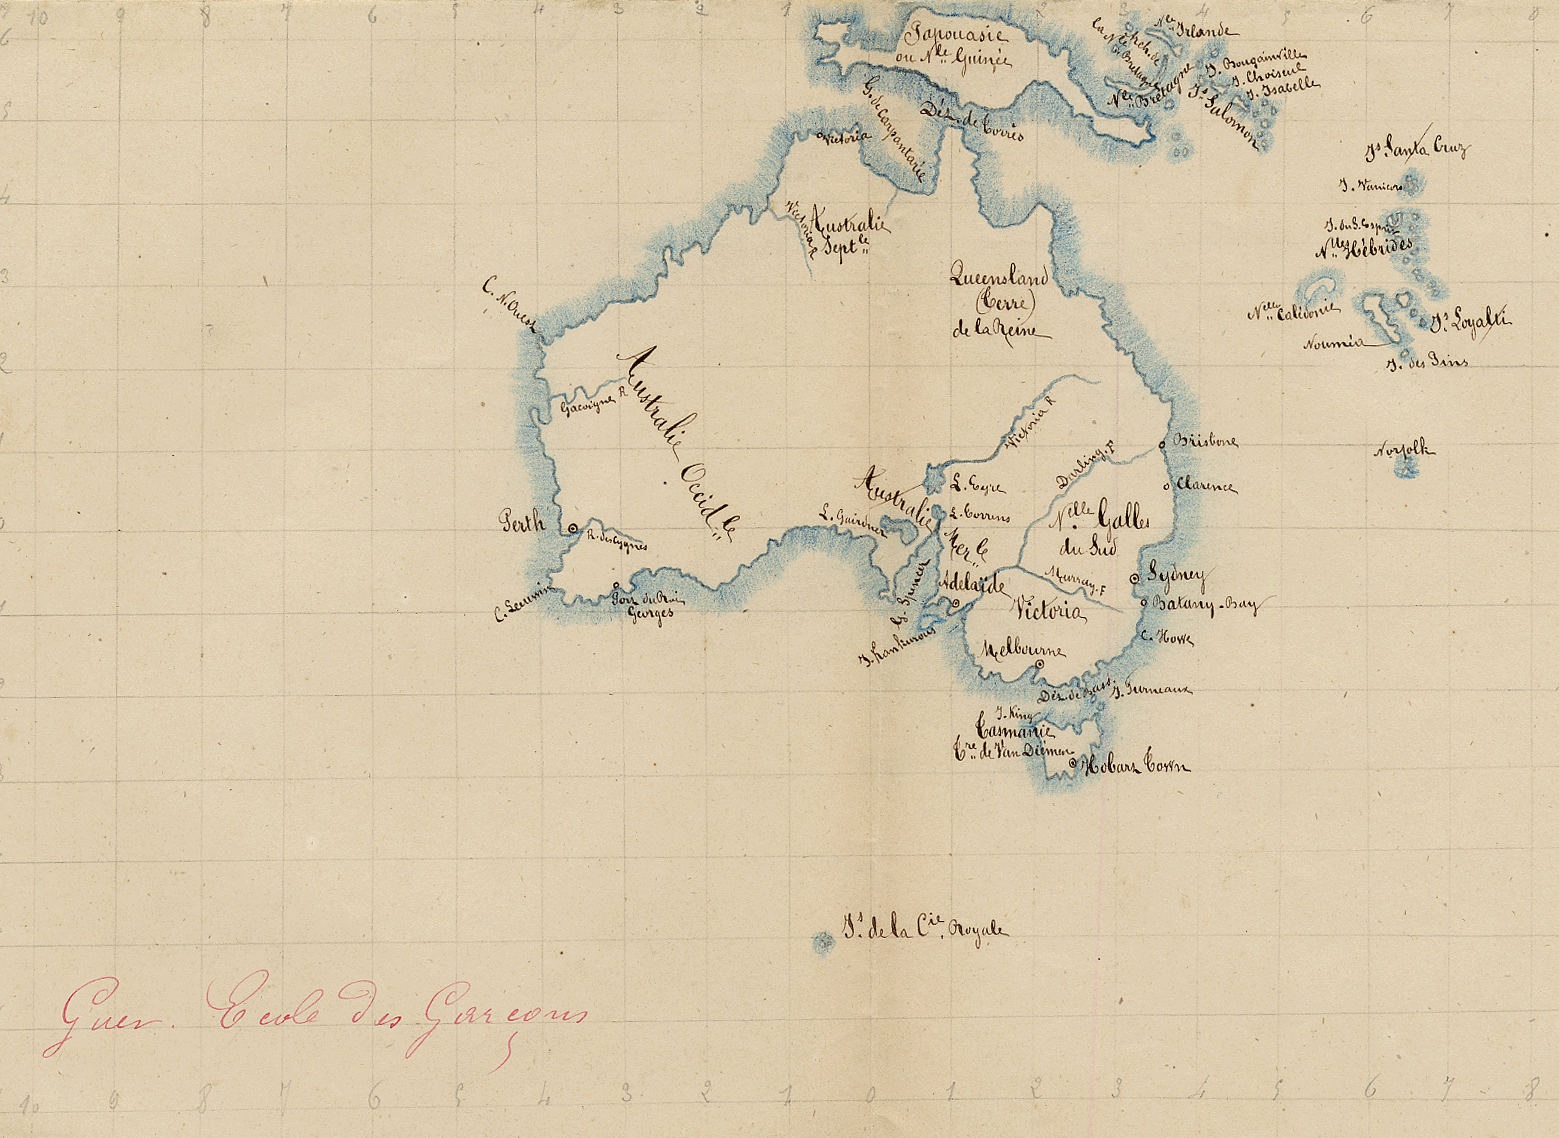 10 9 8 7 6 5 4 3 2 1 2 3 4 5 6 7 8
6
5
4
3
2
1
0
1
2
3
Papouasie
ou Nlle Guinée
Nlle Irlande
Arch. de
la Nlle Bretagne
Nlle Bretagne
I. Bougainville
I. Choiseul
I. Isabelle
Is Salomon
G. de Carpantarie
Dét. de Torrès
Victoria
Is Santa Cruz
I. Vanicoro
I. du S. Esprit
Nlles Hébrides
Victoria R
Australie
Septle
C. N. Ouest
Queensland
(Terre)
de la Reine
Nelle Calédonie
Is Loyalti
Noumia
I. des Pins
Gascoigne R
Australie Occidle
Victoria R
Darling. F
Brisbone
Norfolk
Clarence
L. Eyre
Australie
Merle
L. Torrens
L. Gairdner
Nelle Galles
du Sud
Perth
R. des Cygnes
Murray. F
Sydney
Adelaïde
G. Spencer
Batany-Bay
C. Leeuwin
Port du Roi
Georges
Victoria
C. Howe
I. Kankurous
Melbourne
Dét. de Bass
I. Furneaux
I. King
Tasmanie
Tre de Van Diémen
Hobart Town
Is de la Cie Royale
Guer. Ecole des Garçons
10 9 8 7 6 5 4 3 2 1 0 1 2 3 4 5 6 7 8